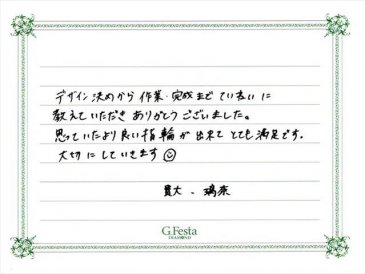 デザイン決めから作業、完成までていねいに
教えていただきありがとうございました。
思っていたより良い指輪が出来てとても満足です。
大切にしていきます☺
貴大、瑞菜
G.Festa
DIAMOND